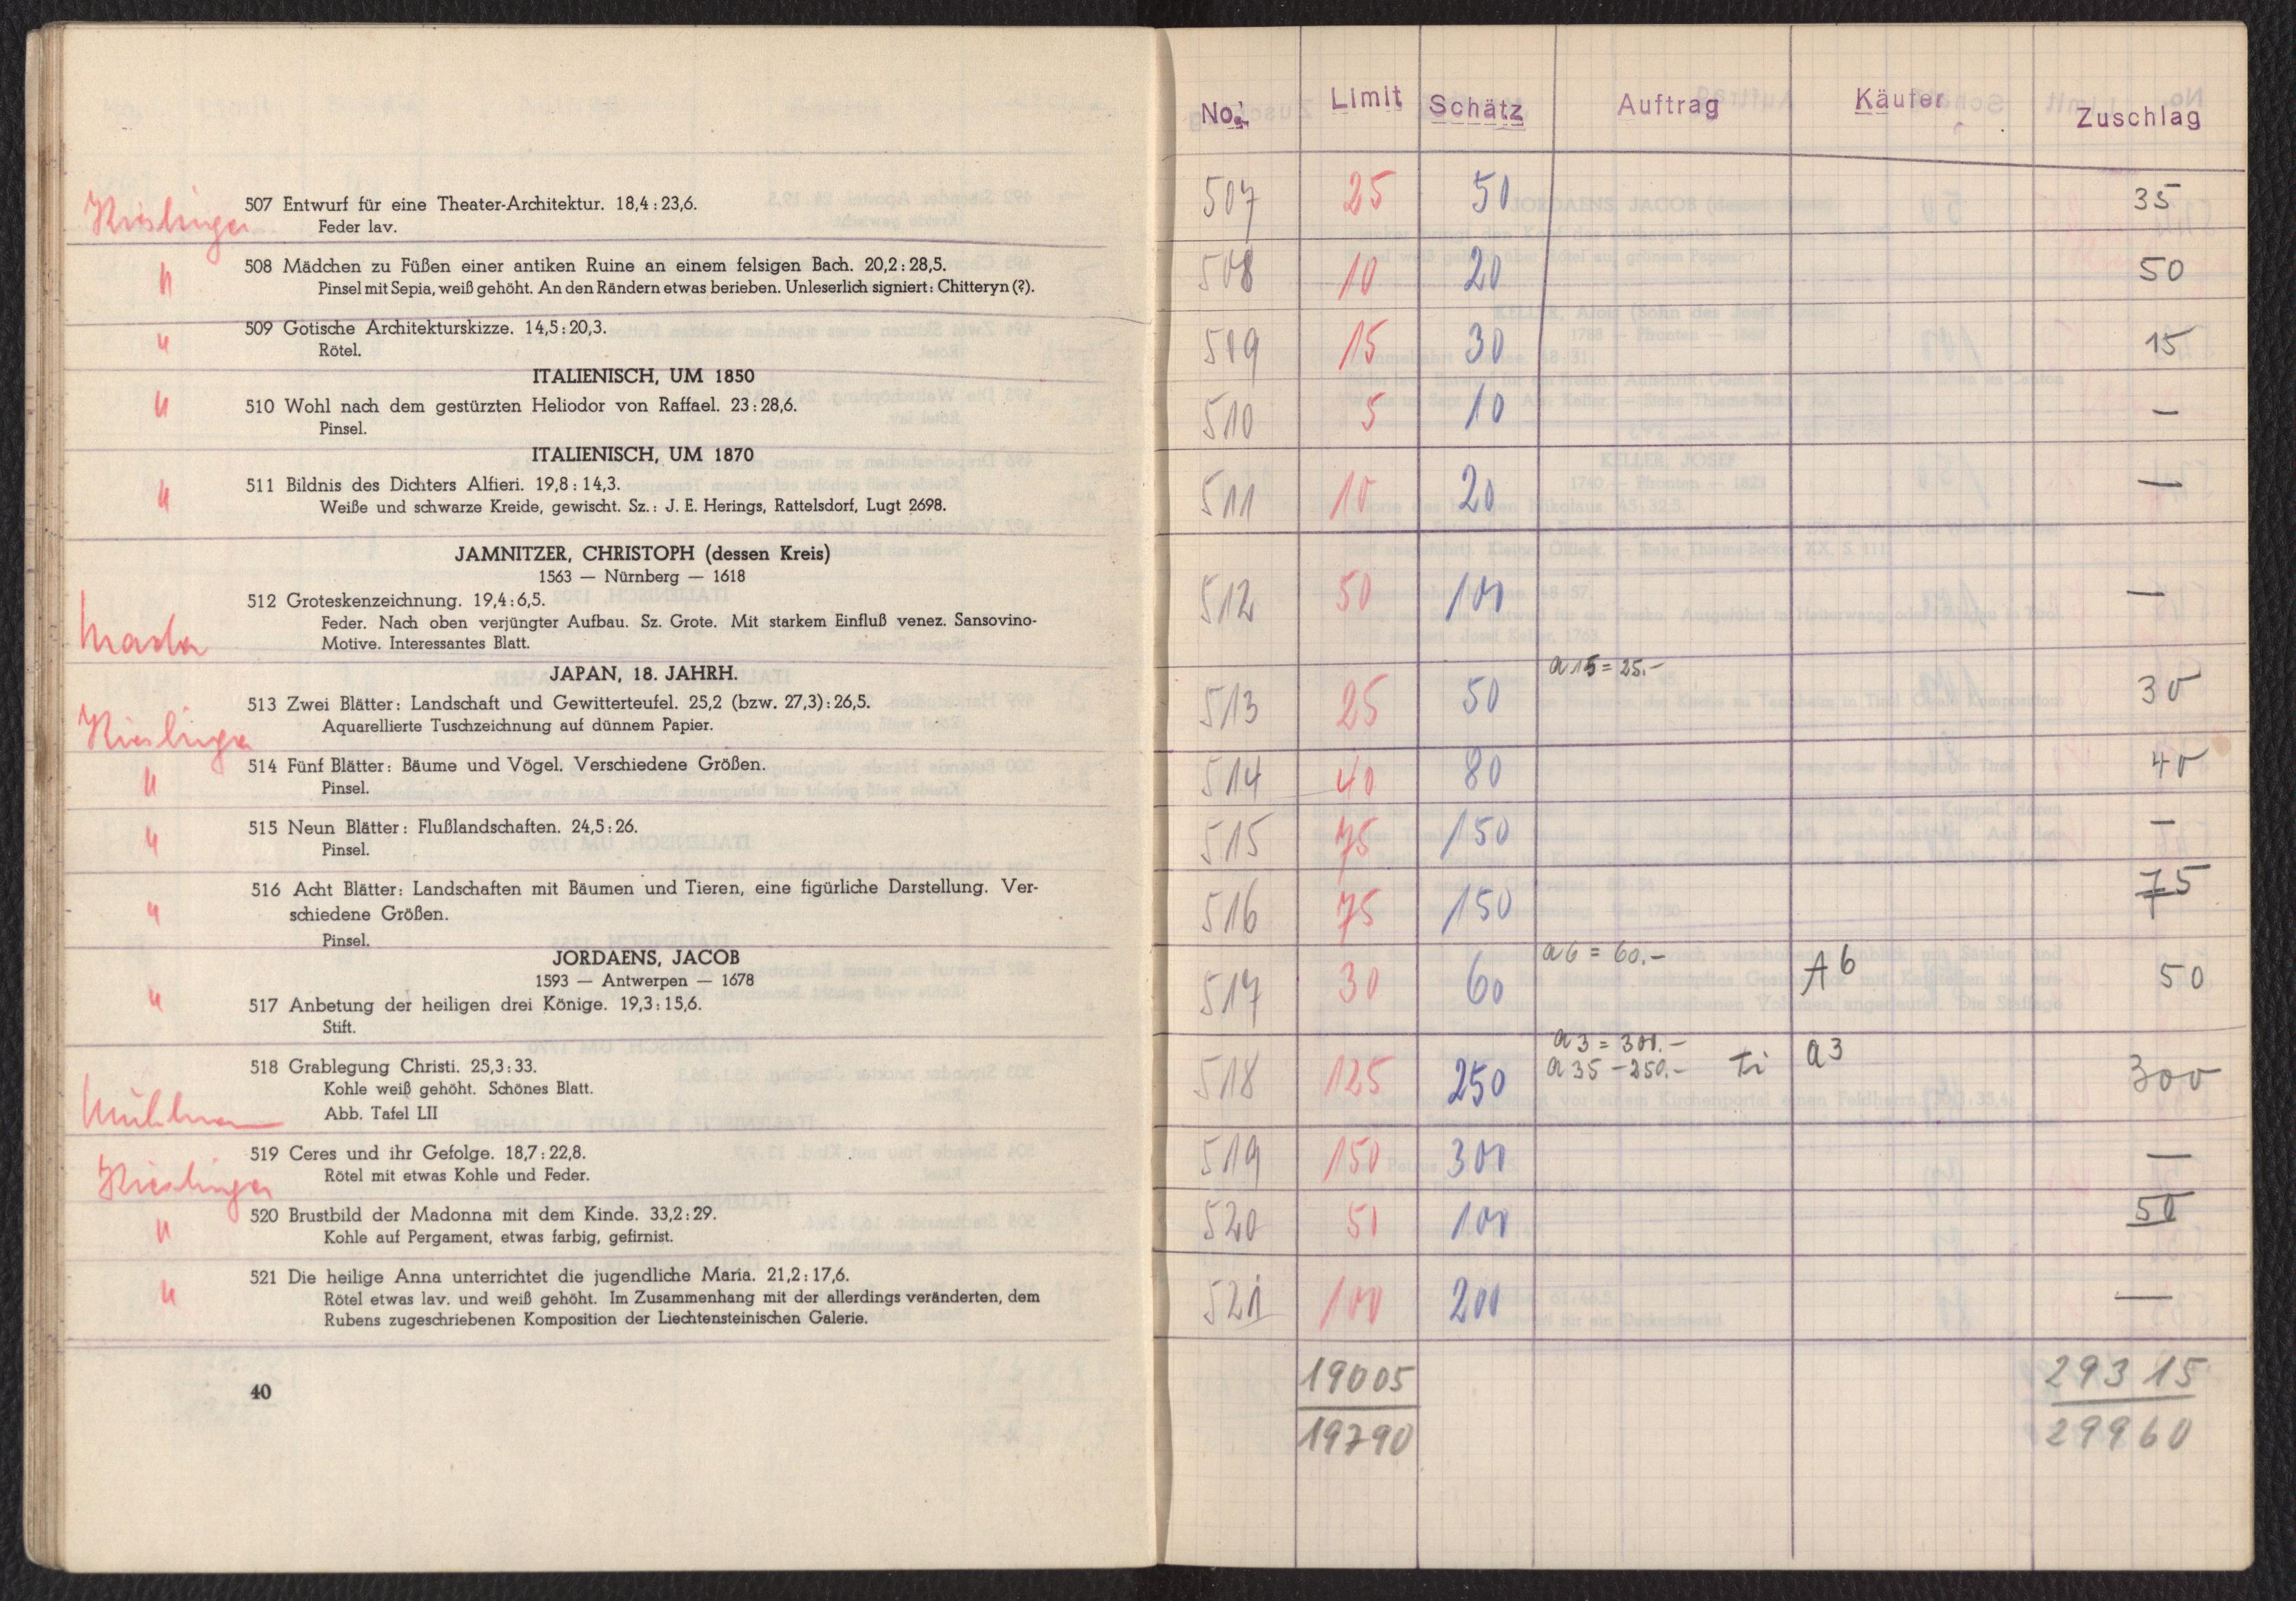 Kieslinger
507 Entwurf für eine Theater-Architektur. 18,4 : 23,6.
Feder lav.
"
508 Mädchen zu Füßen einer antiken Ruine an einem felsigen Bach. 20,2 : 28,5.
Pinsel mit Sepia, weiß gehöht. An den Rändern etwas berieben. Unleserlich signiert: Chitteryn (?).
"
509 Gotische Architekturskizze. 14,5 : 20,3.
Rötel.
ITALIENISCH, UM 1850
"
510 Wohl nach dem gestürzten Heliodor von Raffael. 23 : 28,6.
Pinsel.
ITALIENISCH, UM 1870
"
511 Bildnis des Dichters Alfieri. 19,8 : 14,3.
Weiße und schwarze Kreide, gewischt. Sz.: J. E. Herings, Rattelsdorf, Lugt 2698.
JAMNITZER, CHRISTOPH (dessen Kreis)
1563 — Nürnberg — 1618
512 Groteskenzeichnung. 19,4 : 6,5.
Feder. Nach oben verjüngter Aufbau. Sz. Grote. Mit starkem Einfluß venez. Sansovino-
Motive. Interessantes Blatt.
JAPAN, 18. JAHRH.
Kieslinger
513 Zwei Blätter: Landschaft und Gewitterteufel. 25,2 (bzw. 27,3) : 26,5.
Aquarellierte Tuschzeichnung auf dünnem Papier.
"
514 Fünf Blätter: Bäume und Vögel. Verschiedene Größen.
Pinsel.
"
515 Neun Blätter: Flußlandschaften. 24,5 : 26.
Pinsel.
"
516 Acht Blätter: Landschaften mit Bäumen und Tieren, eine figürliche Darstellung. Ver-
schiedene Größen.
Pinsel.
JORDAENS, JACOB
1593 — Antwerpen — 1678
"
517 Anbetung der heiligen drei Könige. 19,3 : 15,6.
Stift.
518 Grablegung Christi. 25,3 : 33.
Kohle weiß gehöht. Schönes Blatt.
Abb. Tafel LII
Kieslinger
519 Ceres und ihr Gefolge. 18,7 : 22,8.
Rötel mit etwas Kohle und Feder.
"
520 Brustbild der Madonna mit dem Kinde. 33,2 : 29.
Kohle auf Pergament, etwas farbig, gefirnist.
"
521 Die heilige Anna unterrichtet die jugendliche Maria. 21,2 : 17,6.
Rötel etwas lav. und weiß gehöht. Im Zusammenhang mit der allerdings veränderten, dem
Rubens zugeschriebenen Komposition der Liechtensteinischen Galerie.
40
No. Limit Schätz Auftrag Käufer Zuschlag
507 25 50 35
508 10 20 50
509 15 30 15
510 5 10 —
511 10 20 —
512 50 100 —
513 25 50 a 15 = 25.- 30
514 40 80 40
515 75 150 —
516 75 150 75
517 30 60 a 6 = 60.- A 6 50
a 3 = 300.-
518 125 250 a 35 - 250.- Ti a 3 300
519 150 300 —
520 50 100 50
521 100 200 —
19005 29315
19790 29960